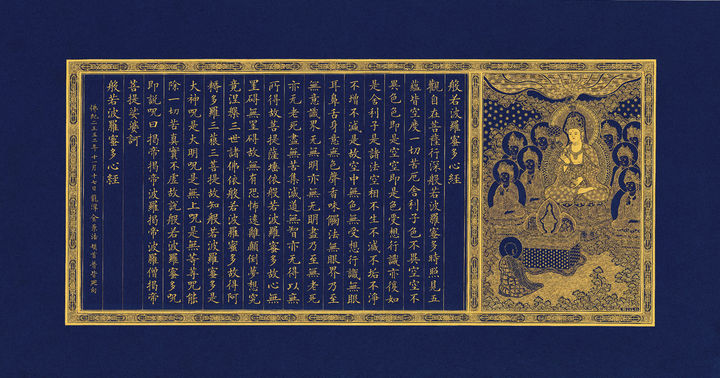 般若波羅蜜多心經
觀自在菩薩行深般若波羅蜜多時照見五
蘊皆空度一切苦厄舍利子色不異空空不
異色色即是空空即是色受想行識亦復如
是舍利子是諸法空相不生不滅不垢不淨
不增不減是故空中無色無受想行識無眼
耳鼻舌身意無色聲香味觸法無眼界乃至
無意識界无無明亦無无明盡乃至無老死
亦无老死盡無苦集滅道無智亦无得以無
所得故菩提薩埵依般若波羅蜜多故心無
罣礙無罣礙故無有恐怖遠離顛倒夢想究
竟涅槃三世諸佛依般若波羅蜜多故得阿
耨多羅三藐三菩提故知般若波羅蜜多是
大神呪是大明呪是無上呪是無等等呪能
除一切苦真實不虛故說般若波羅蜜多呪
即說呪曰揭帝揭帝波羅揭帝波羅僧揭帝
菩提娑婆訶
般若波羅蜜多心經
佛紀二五五二年十一月十七日 金景浩 頓首普皆廻向